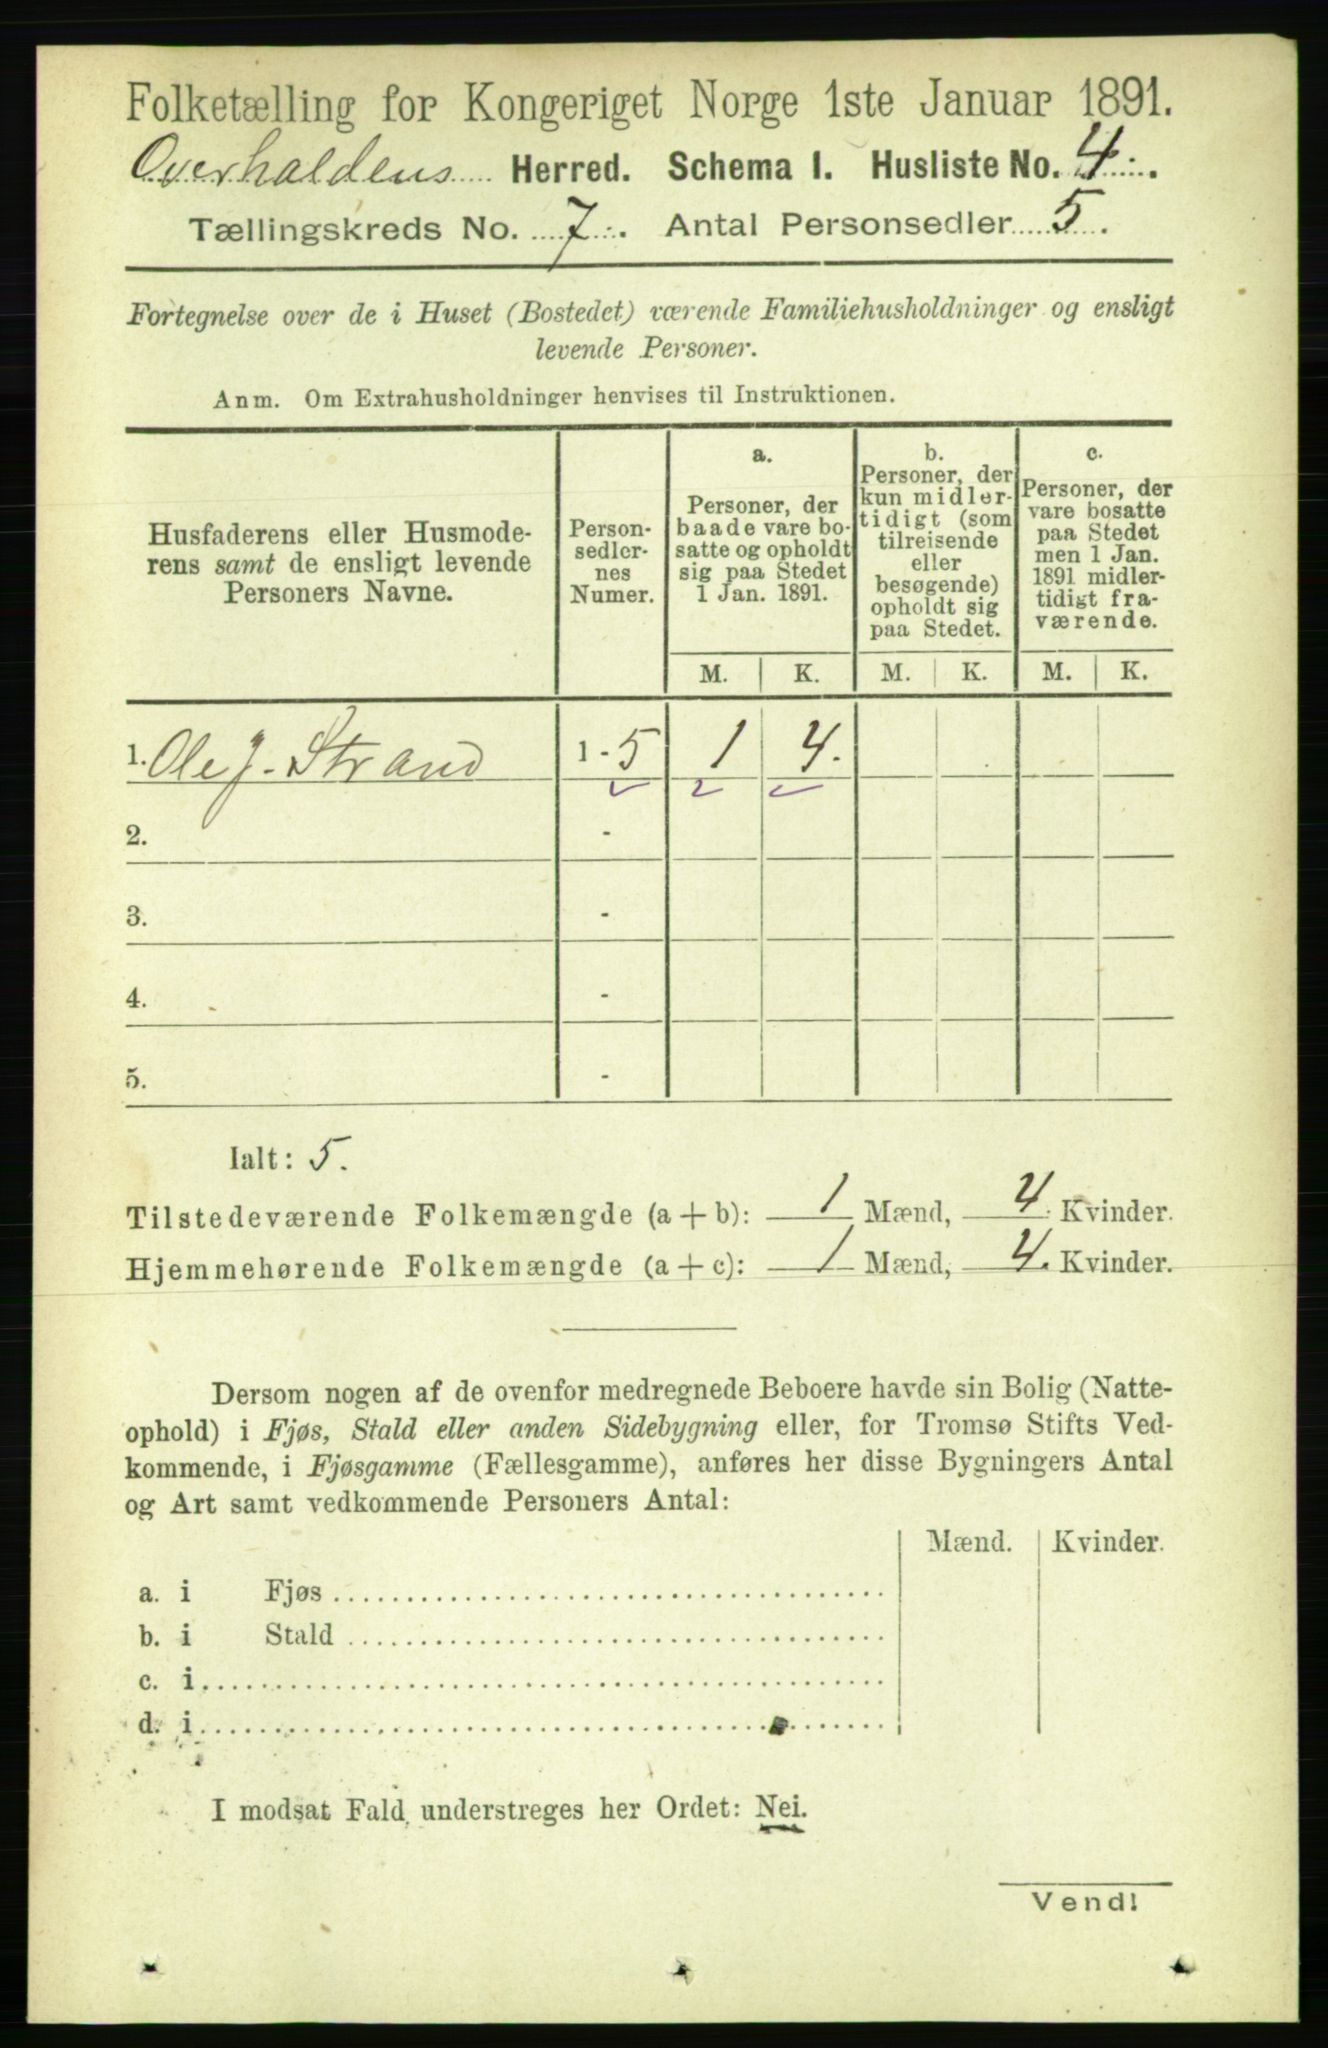 Folketælling for Kongeriget Norge 1ste Januar 1891.
Overhaldens Herred. Schema I. Husliste No. 4.
Tællingskreds No. 7. Antal Personsedler 5.
Fortegnelse over de i Huset (Bostedet) værende Familiehusholdninger og ensligt
levende Personer.
Anm. Om Extrahusholdninger henvises til Instruktionen.
Husfaderens eller Husmode-
rens samt de ensligt levende
Personers Navne.
Person-
sedler-
nes
Numer.
a.
Personer, der
baade vare bo-
satte og opholdt
sig paa Stedet
1 Jan. 1891.
b.
Personer, der
kun midler-
tidigt (som
tilreisende
eller
besøgende)
opholdt sig
paa Stedet.
c.
Personer, der
vare bosatte
paa Stedet
men 1 Jan.
1891 midler-
tidigt fra-
værende.
M. K. M. K. M. K.
1. Ole J. Strand 1-5 1 4.
2. -
3. -
4. -
5. -
Ialt: 5.
Tilstedeværende Folkemængde (a + b): 1 Mænd, 4 Kvinder.
Hjemmehørende Folkemængde (a + c): 1 Mænd, 4. Kvinder.
Dersom nogen af de ovenfor medregnede Beboere havde sin Bolig (Natte-
ophold) i Fjøs, Stald eller anden Sidebygning eller, for Tromsø Stifts Ved-
kommende, i Fjøsgamme (Fællesgamme), anføres her disse Bygningers Antal
og Art samt vedkommende Personers Antal:
Mænd. Kvinder.
a. i Fjøs
b. i Stald
c. i
d. i
I modsat Fald understreges her Ordet: Nei.
Vend!